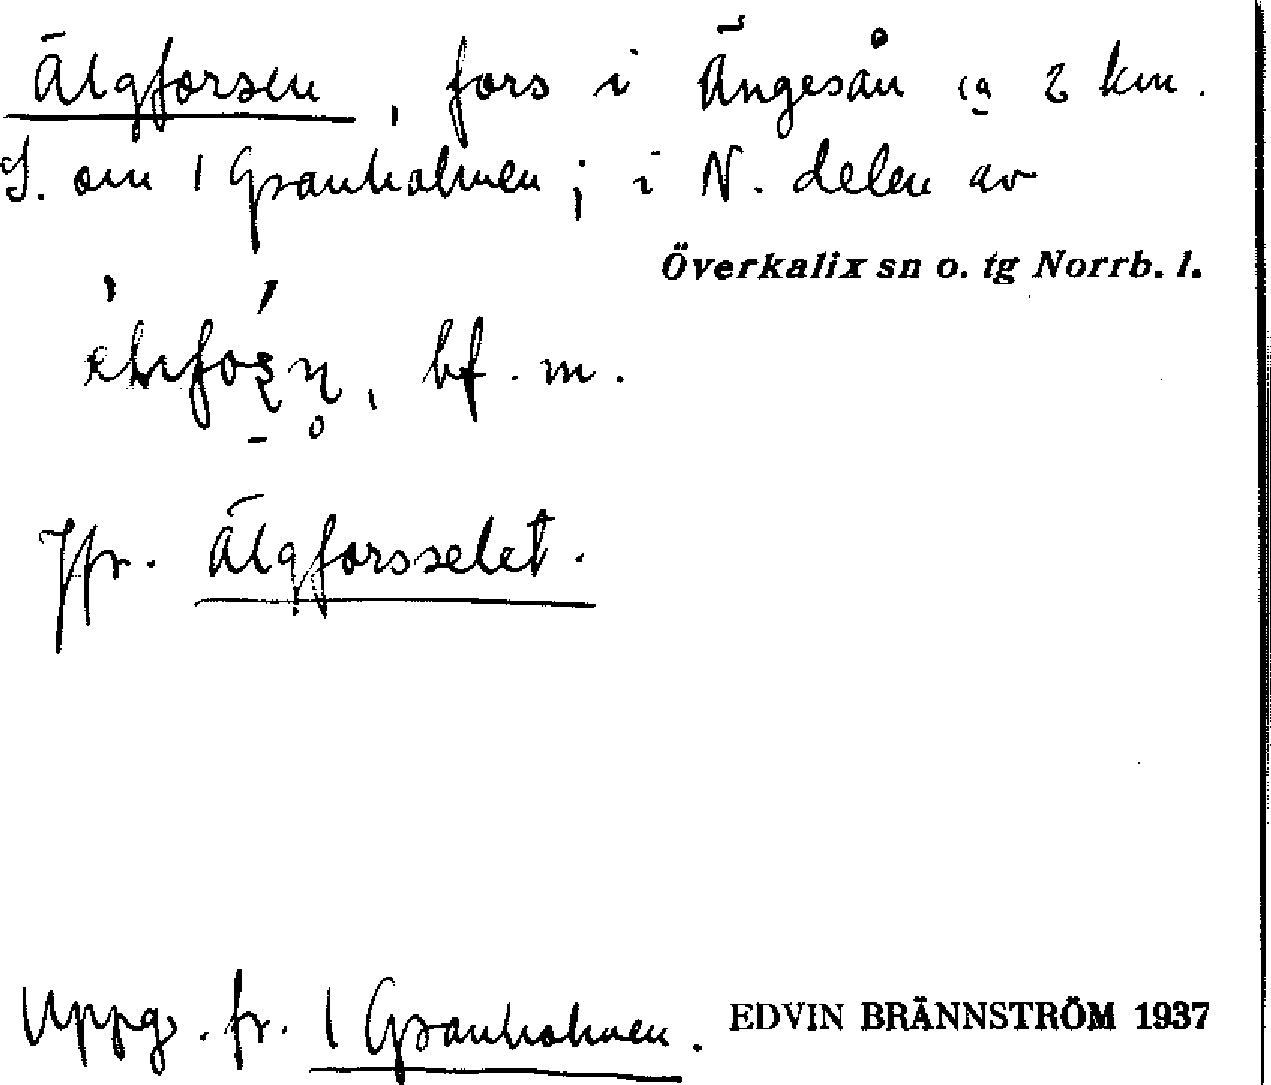 Älgforsen, fors i Ängesån ca 2 km.
S. om 1 Granholmen; i N. delen av
Överkalix sn o. tg Norrb. l.
bf. m.
Jfr. Älgforsselet.
Uppg. fr. 1 Granholmen. EDVIN BRÄNNSTRÖM 1937